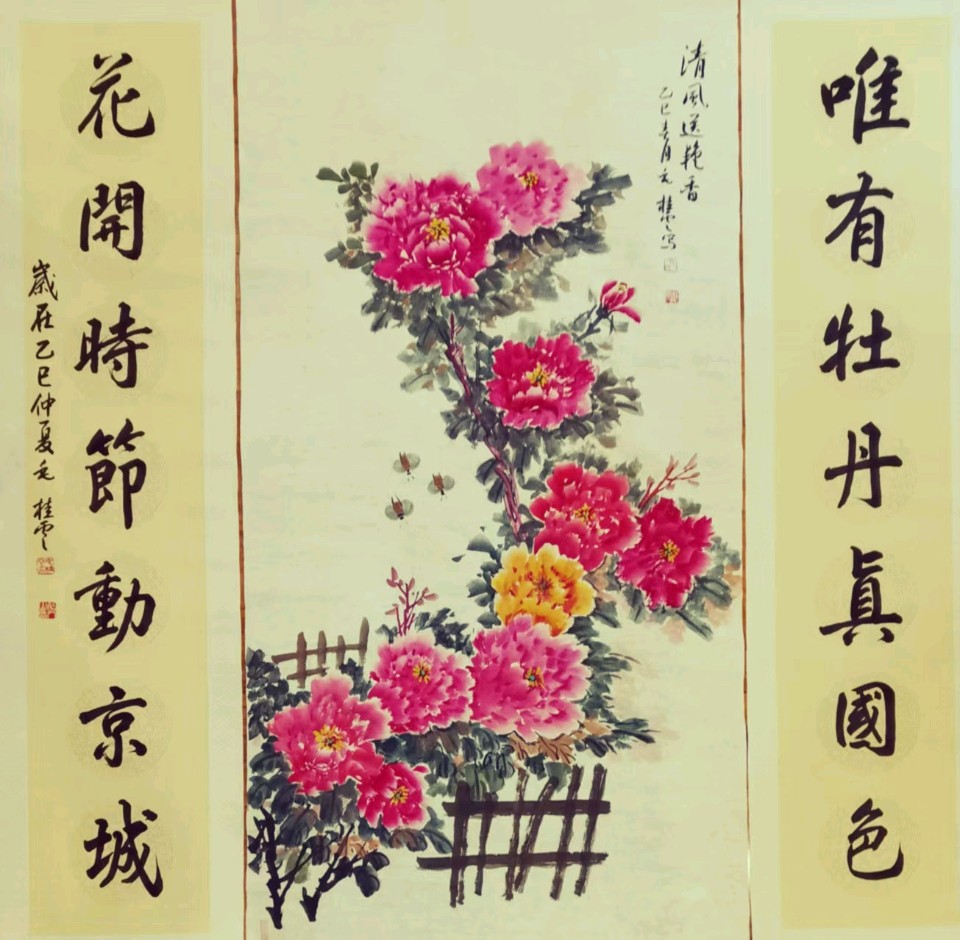 唯有牡丹真國色
清風送艳香
乙巳春月元桂雲写
花開時節動京城
歲在乙巳仲夏元桂雲